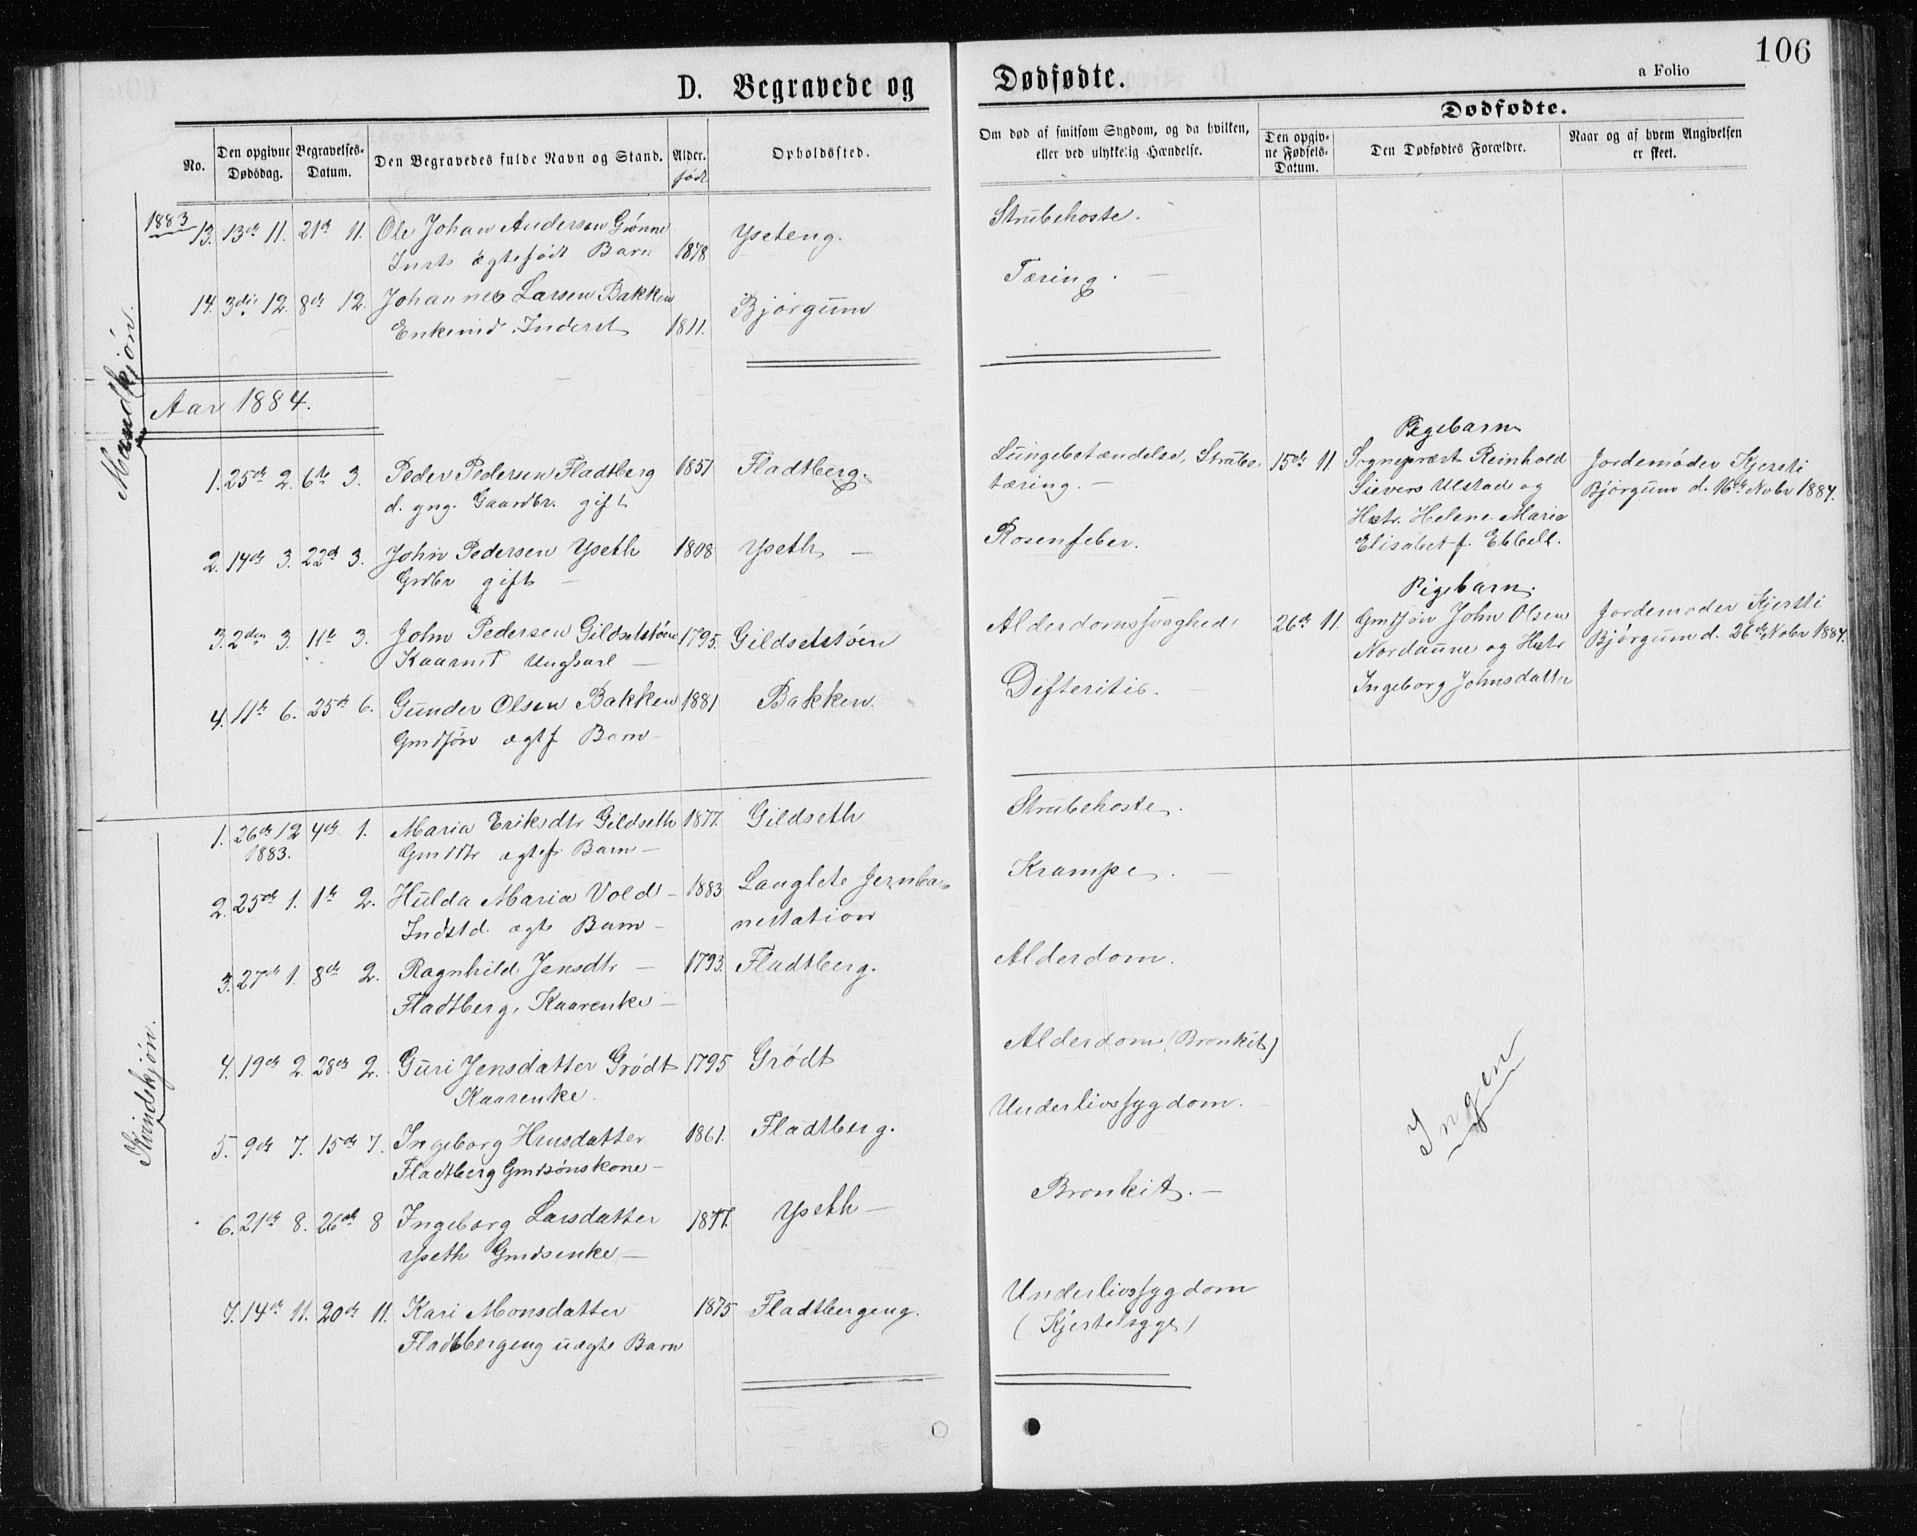 106
D. Begravede og Dødfødte.
a Folio
No.
Den opgivne Dødsdag.
Begravelses-Datum.
Den Begravedes fulde Navn og Stand.
Alder.
født
Opholdssted.
Om død af smitsom Sygdom, og da hvilken, eller ved ulykkelig Hændelse.
Dødfødte.
Den opgivne Fødsels-Datum.
Den Dødfødtes Forældre.
Naar og af hvem Angivelsen er skeet.
Mandkjøn.
1883 13. 13de 11. 21de 11. Ole Johan Andersen Grønne 1878 Yseteng. Strubehoste.
Insts ægtefødt Barn
14. 3die 12. 8de 12. Johannes Larsen Bakken 1811. Bjørgum Tæring.
Enkemd. Inderst
Aar 1884.
1. 25de 2. 6te 3. Peder Pedersen Fladtberg 1851 Fladtberg. Lungebetændelse, Strube-
d. yng. Gaardbr. gift
tæring.
2. 14de 3. 22de 3. John Pedersen Yseth 1808 Yseth Rosenfeber.
Grdbr gift
3. 2den 3. 11te 3. John Pedersen Gildsetstøen 1795. Gildsetstøen Alderdomssvaghed
Kaarmd Ungkarl
4. 11te 6. 25de 6. Gunder Olsen Bakken 1881 Bakken. Difteritis.
Gmdsøn ægtf Barn
15de 11. Pigebarn
Sognepræst Reinhold
Sievers Ulstad og
Hstr. Helene Maria
Elisabet f. Ebbell.
Jordemoder Kjersti
Bjørgum d. 16de Nobr 1884.
26de 11. Pigebarn.
Gmdsøn John Olsen
Nordaune og Hstr
Ingeborg Johnsdatter
Jordemoder Kjersti
Bjørgum d. 26de Nobr 1884.
Kvindekjøn.
1. 26de 12 1883. 4de 1. Maria Eriksdtr Gildseth 1877. Gildseth Strubehoste.
Gmddtr ægtef. Barn
2. 25de 1. 1te 2. Hulda Maria Vold 1883 Langlete Jernba- Krampe.
Indstd. ægte Barn
nestation
3. 27de 1. 8de 2. Ragnhild Jensdtr 1793. Fladtberg. Alderdom.
Fladtberg, Kaarenke
4. 19de 2. 28de 2. Guri Jensdatter Grødt 1795 Grødt Alderdom (Bronkit)
Kaarenke.
5. 9de 7. 15de 7. Ingeborg Hansdatter 1861. Fladtberg. Underlivssygdom.
Fladtberg Gmdsønskone
6. 21de 8. 26de 8 Ingeborg Larsdatter Yseth Bronkit.
Yseth Gmdsenke
7. 14de 11. 20de 11. Kari Monsdatter 1875 Fladtbergeng. Underlivssygdom
Fladtbergeng uægte Barn
(Kjertelsyge)
Ingen